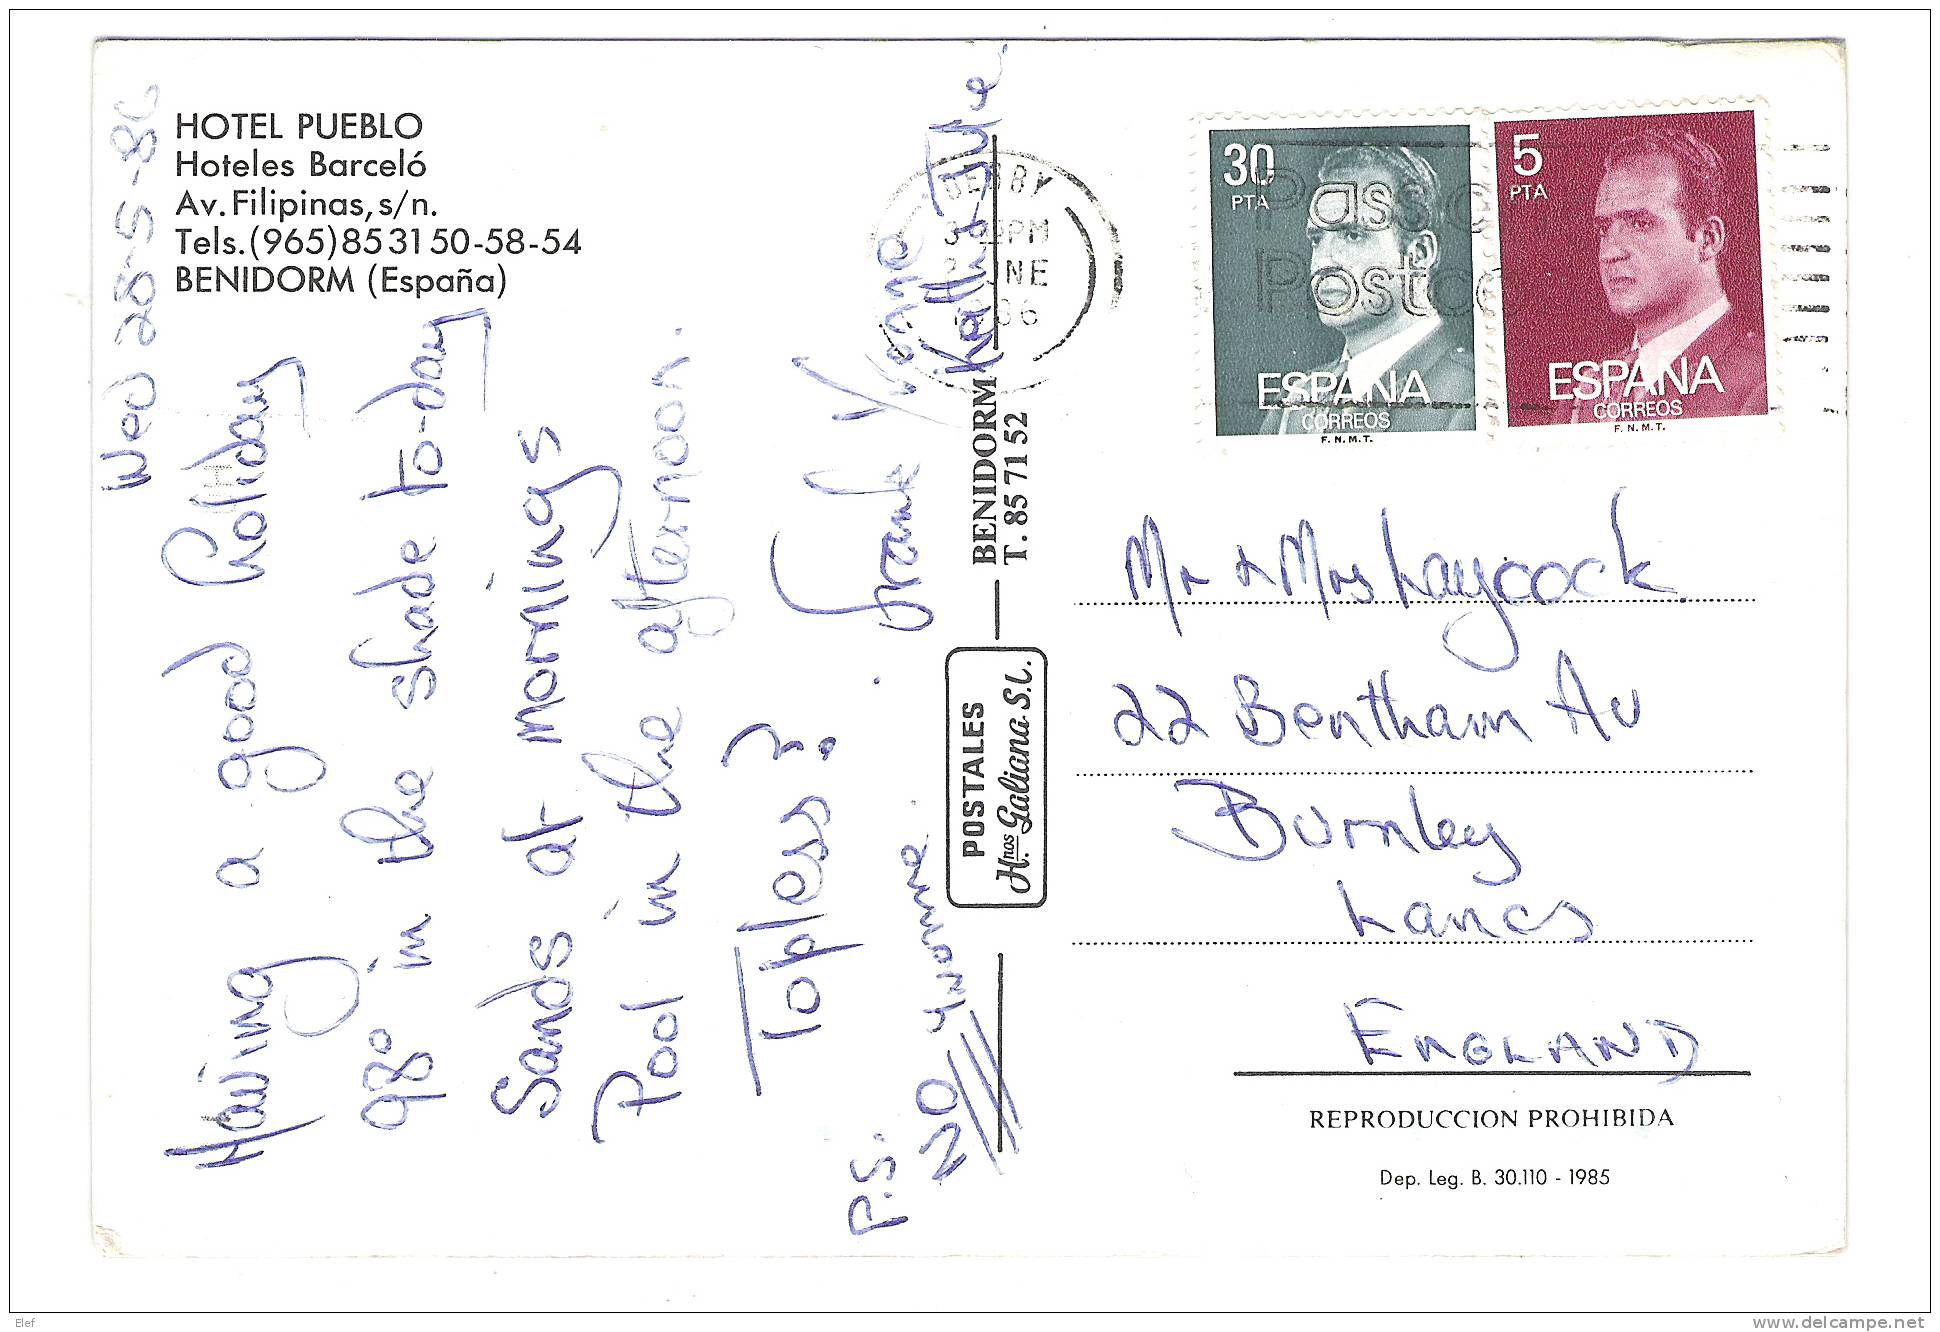 HOTEL PUEBLO
Hoteles Barceló
Av. Filipinas, s/n.
Tels. (965) 85 31 50-58-54
BENIDORM (España)
Wed 28-5-86
Having a good holiday
98° in the shade to-day
Sands at mornings
Pool in the afternoon.
Topless?
Frank Vonne
Kath & Julie
P.S.
NO Ynonne
POSTALES
H.nos Galiana S.L.
BENIDORM
T. 85 71 52
DERBY
PM
NE
30
PTA
ESPAÑA
CORREOS
F.N.M.T.
5
PTA
ESPAÑA
CORREOS
F.N.M.T.
Mr & Mrs Laycock
22 Bentham Av
Burnley
Lancs
ENGLAND
REPRODUCCION PROHIBIDA
Dep. Leg. B. 30.110 - 1985
Elef
delcampe.net